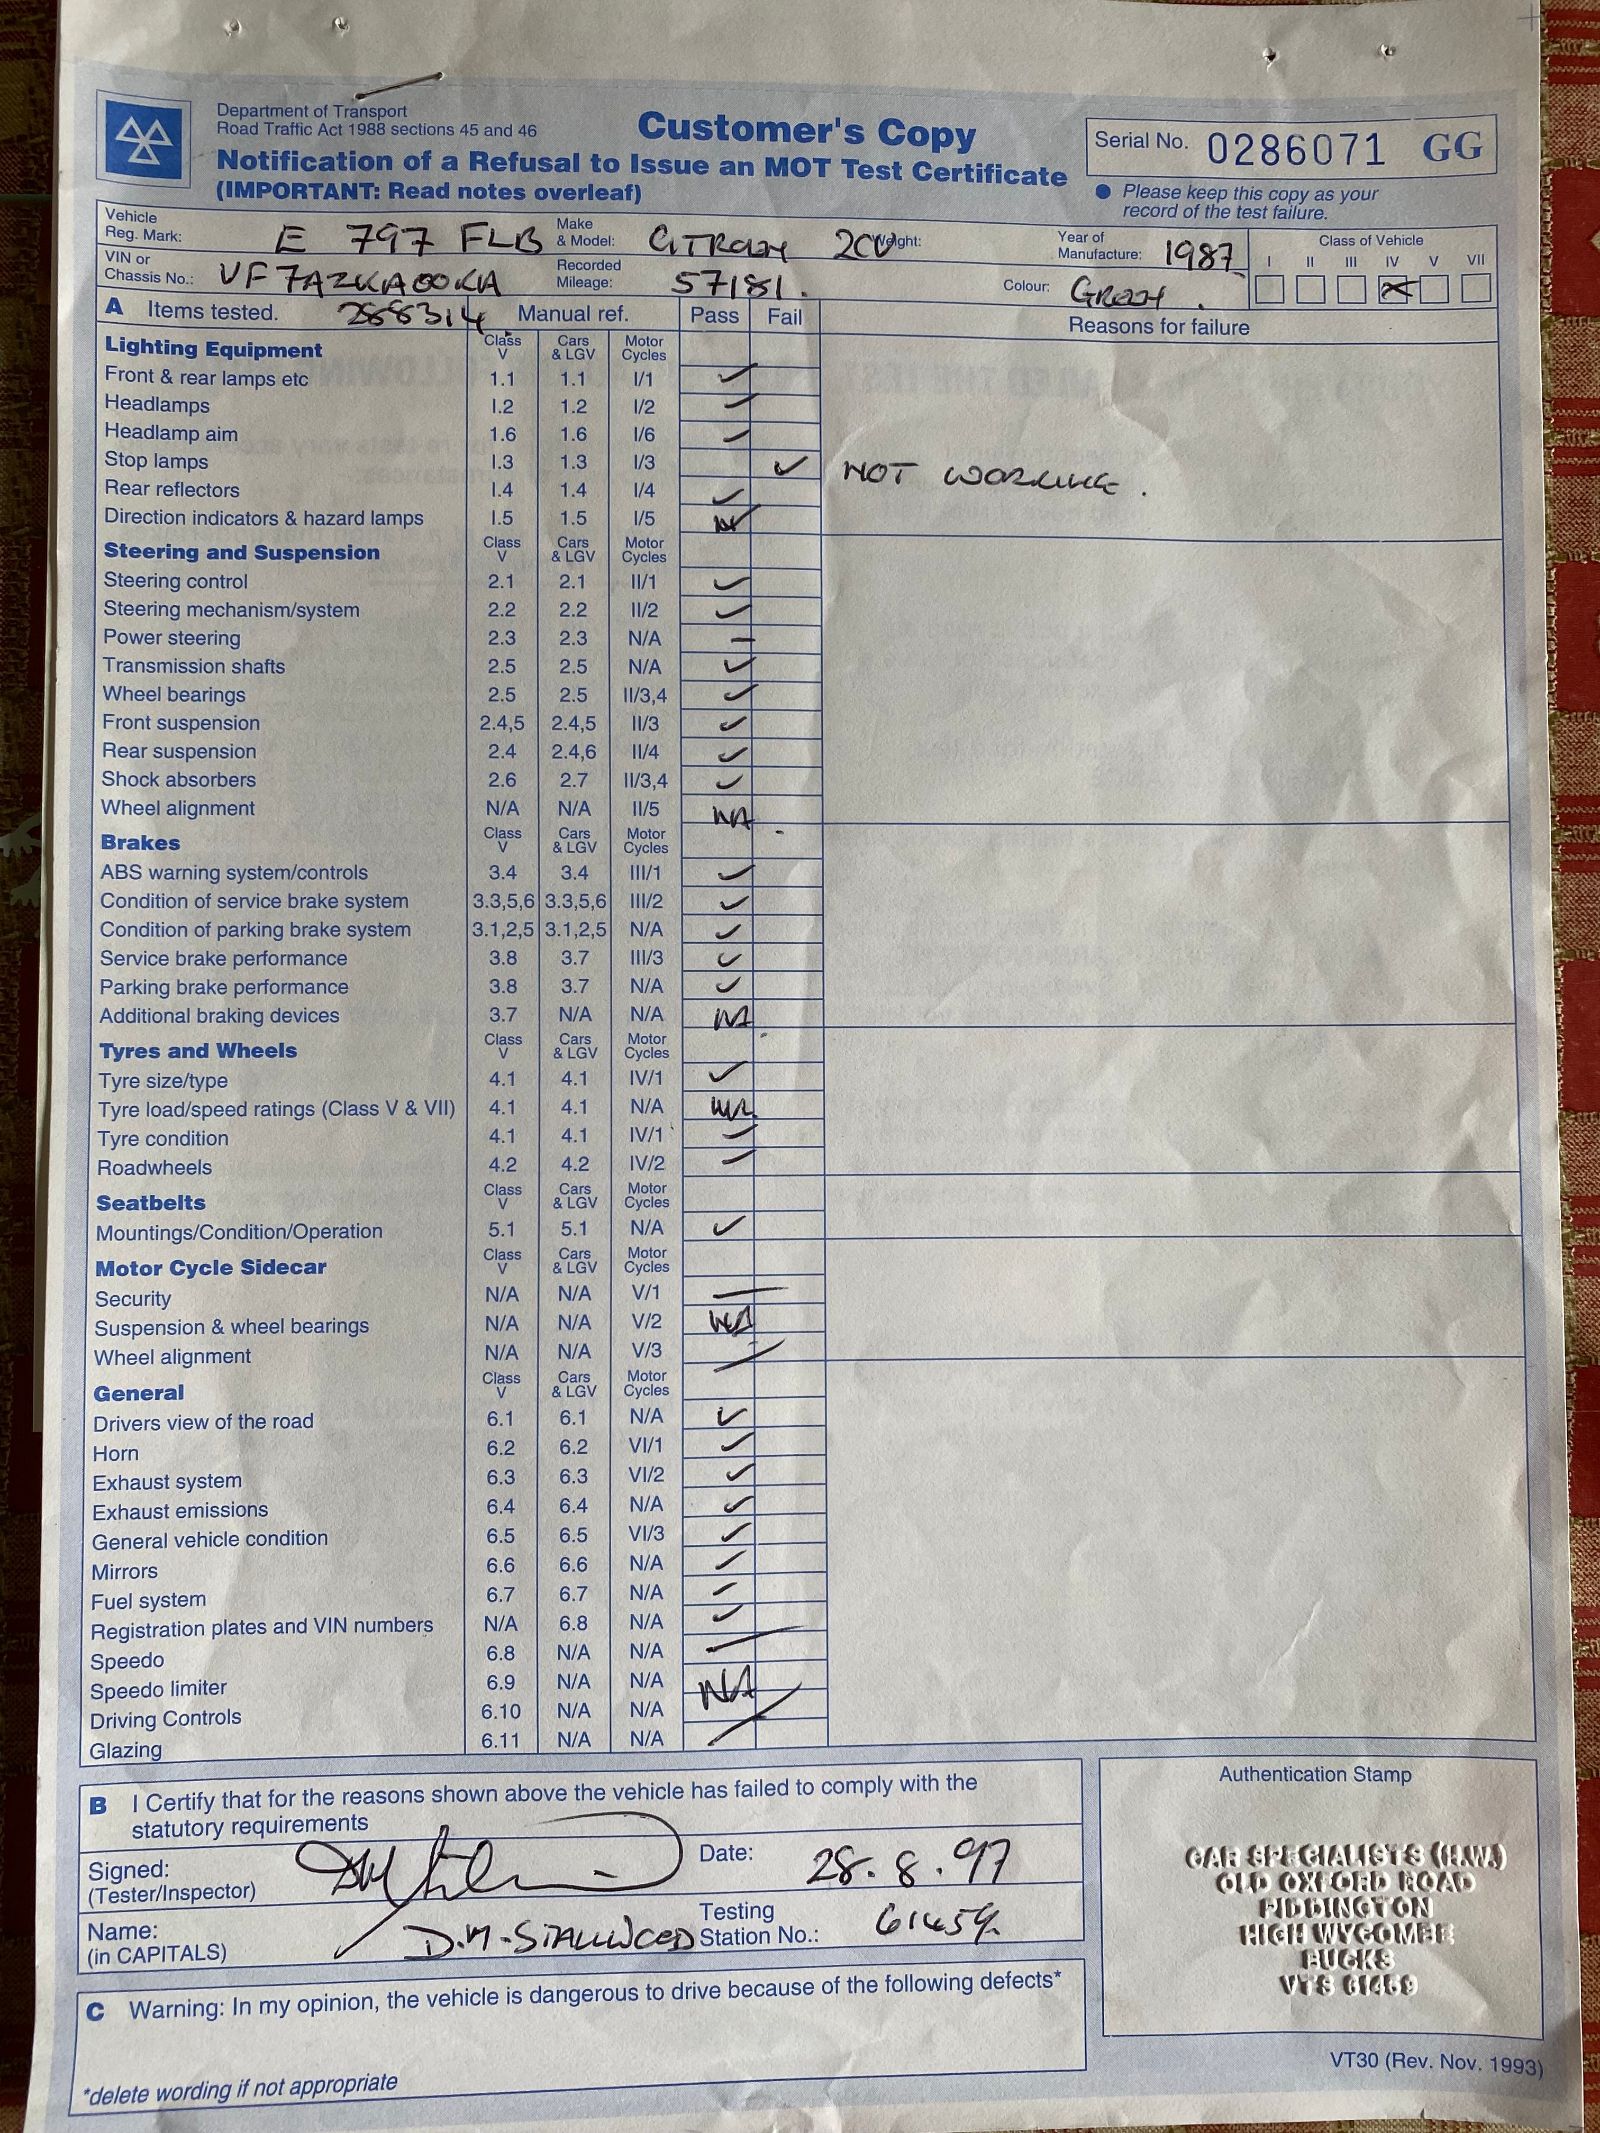 Department of Transport
Road Traffic Act 1988 sections 45 and 46
Customer's Copy
Notification of a Refusal to Issue an MOT Test Certificate
(IMPORTANT: Read notes overleaf)
Serial No. 0286071 GG
● Please keep this copy as your
record of the test failure.
Vehicle Reg. Mark: E 797 FLB Make & Model: CITROEN 2CV Weight: Year of Manufacture: 1987 Class of Vehicle
I II III IV V VII
VIN or Chassis No.: VF7AZKA00KA Recorded Mileage: 57181. Colour: GREEN.
A Items tested. 288314 Manual ref. Pass Fail Reasons for failure
Lighting Equipment Class V Cars & LGV Motor Cycles
Front & rear lamps etc 1.1 1.1 I/1 ✓
Headlamps I.2 1.2 I/2 ✓
Headlamp aim 1.6 1.6 I/6 ✓
Stop lamps I.3 1.3 I/3 ✓ NOT WORKING.
Rear reflectors I.4 1.4 I/4 ✓
Direction indicators & hazard lamps I.5 1.5 I/5 ✓
Steering and Suspension Class V Cars & LGV Motor Cycles
Steering control 2.1 2.1 II/1 ✓
Steering mechanism/system 2.2 2.2 II/2 ✓
Power steering 2.3 2.3 N/A –
Transmission shafts 2.5 2.5 N/A ✓
Wheel bearings 2.5 2.5 II/3,4 ✓
Front suspension 2.4,5 2.4,5 II/3 ✓
Rear suspension 2.4 2.4,6 II/4 ✓
Shock absorbers 2.6 2.7 II/3,4 ✓
Wheel alignment N/A N/A II/5 NA
Brakes Class V Cars & LGV Motor Cycles
ABS warning system/controls 3.4 3.4 III/1 ✓
Condition of service brake system 3.3,5,6 3.3,5,6 III/2 ✓
Condition of parking brake system 3.1,2,5 3.1,2,5 N/A ✓
Service brake performance 3.8 3.7 III/3 ✓
Parking brake performance 3.8 3.7 N/A ✓
Additional braking devices 3.7 N/A N/A NA
Tyres and Wheels Class V Cars & LGV Motor Cycles
Tyre size/type 4.1 4.1 IV/1 ✓
Tyre load/speed ratings (Class V & VII) 4.1 4.1 N/A NA
Tyre condition 4.1 4.1 IV/1 ✓
Roadwheels 4.2 4.2 IV/2 ✓
Seatbelts Class V Cars & LGV Motor Cycles
Mountings/Condition/Operation 5.1 5.1 N/A ✓
Motor Cycle Sidecar Class V Cars & LGV Motor Cycles
Security N/A N/A V/1
Suspension & wheel bearings N/A N/A V/2 NA
Wheel alignment N/A N/A V/3
General Class V Cars & LGV Motor Cycles
Drivers view of the road 6.1 6.1 N/A ✓
Horn 6.2 6.2 VI/1 ✓
Exhaust system 6.3 6.3 VI/2 ✓
Exhaust emissions 6.4 6.4 N/A ✓
General vehicle condition 6.5 6.5 VI/3 ✓
Mirrors 6.6 6.6 N/A ✓
Fuel system 6.7 6.7 N/A ✓
Registration plates and VIN numbers N/A 6.8 N/A ✓
Speedo 6.8 N/A N/A
Speedo limiter 6.9 N/A N/A NA
Driving Controls 6.10 N/A N/A
Glazing 6.11 N/A N/A
B I Certify that for the reasons shown above the vehicle has failed to comply with the
statutory requirements
Signed: (Tester/Inspector) Date: 28.8.97
Name: (in CAPITALS) D.M. STALLWOOD Testing Station No.: 61459
Authentication Stamp
CAR SPECIALISTS (H.W.)
OLD OXFORD ROAD
PIDDINGTON
HIGH WYCOMBE
BUCKS
VTS 61459
C Warning: In my opinion, the vehicle is dangerous to drive because of the following defects*
*delete wording if not appropriate
VT30 (Rev. Nov. 1993)